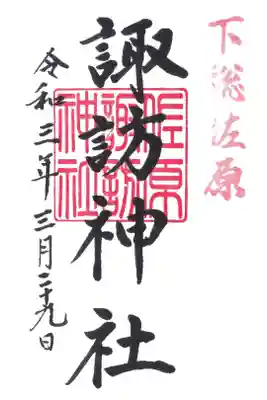 下総佐原
諏訪神社
佐原
諏訪
神社
令和三年三月二十九日